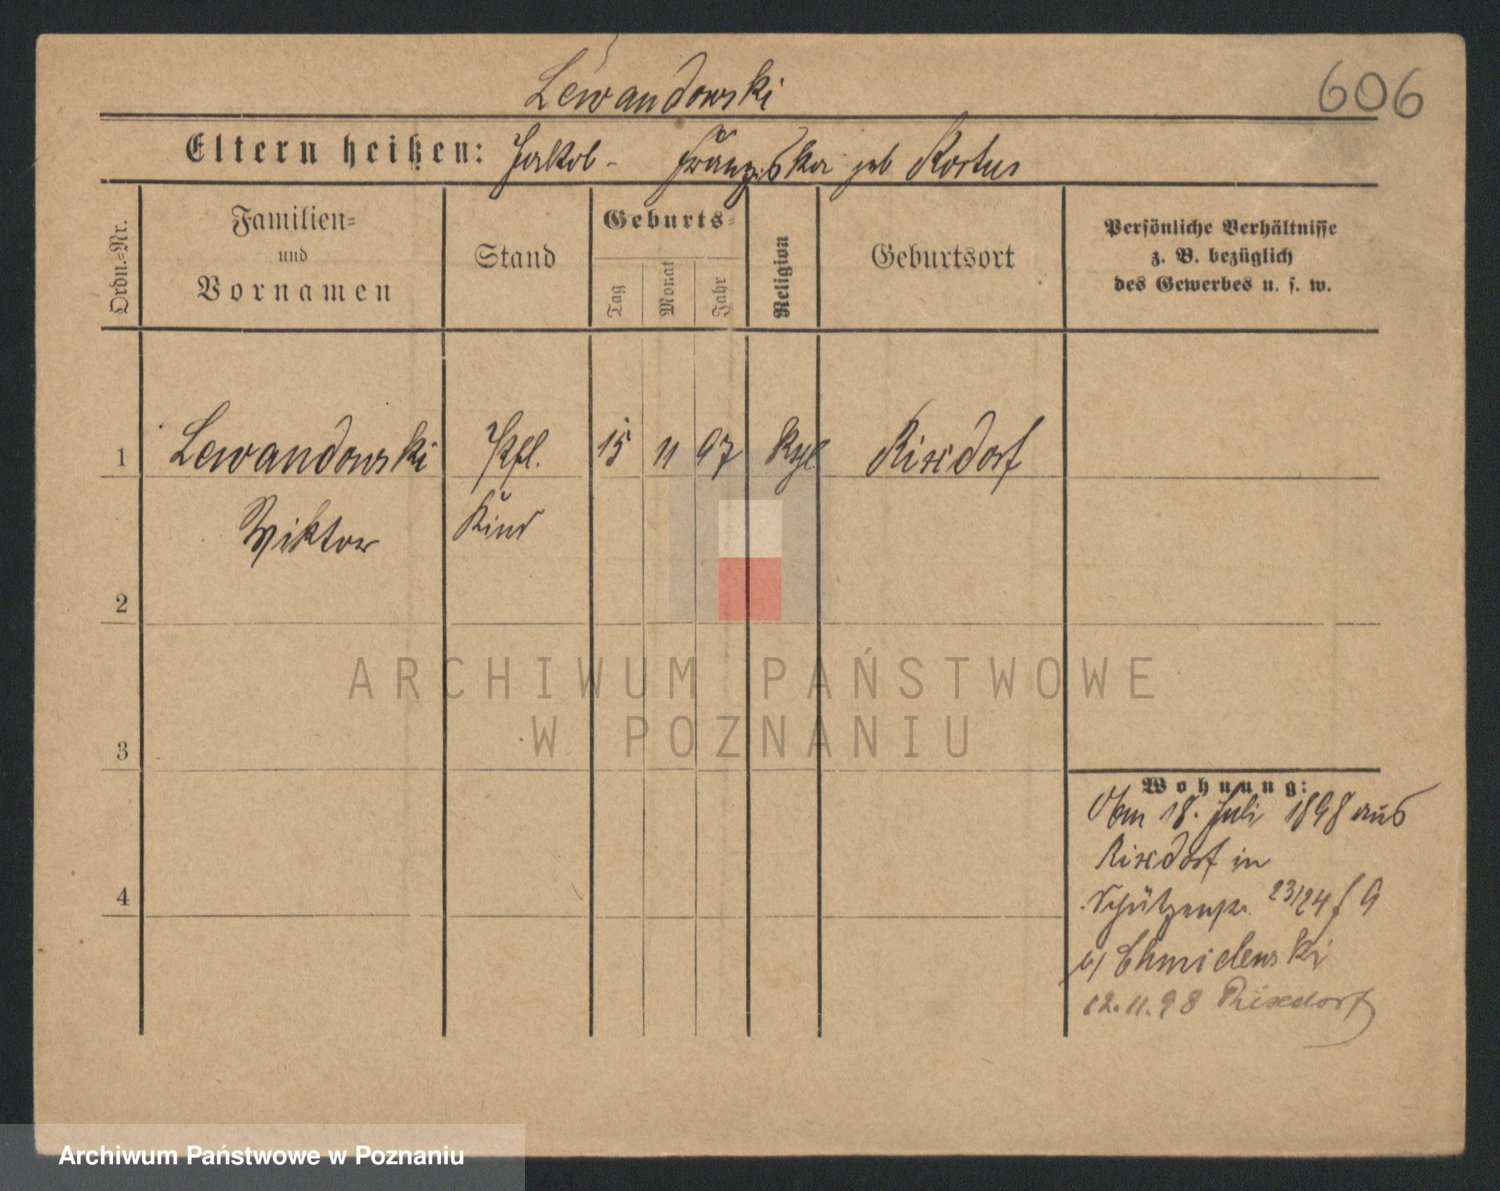 Lewandowski
606
Eltern heißen: Jakob - Franziska geb Kortus
Ordn.-Nr.
Familien-
und
Vornamen
Stand
Geburts-
Tag
Monat
Jahr
Religion
Geburtsort
Persönliche Verhältnisse
z. B. bezüglich
des Gewerbes u. s. w.
1 Lewandowski Pfl. 15 11 97 Rixdorf
Wiktor Kind
2
ARCHIWUM PAŃSTWOWE
W POZNANIU
3
Wohnung:
18. Juli 1898 aus
Rixdorf in
Schützenstr. 23/24
4
b/ Chmielewski
12.11.98 Rixdorf
Archiwum Państwowe w Poznaniu